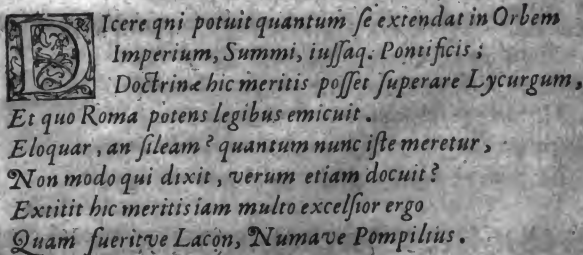 DIcere qni potuit quantum ſe extendat in Orbem
Imperium, Summi, iuſſaq. Pontificis;
Doctrinæ hic meritis poſſet ſuperare Lycurgum,
Et quo Roma potens legibus emicuit.
Eloquar, an ſileam? quantum nunc iſte meretur,
Non modo qui dixit, verum etiam docuit?
Extitit hic meritis iam multo excelſior ergo
Quam fueritve Lacon, Numave Pompilius.